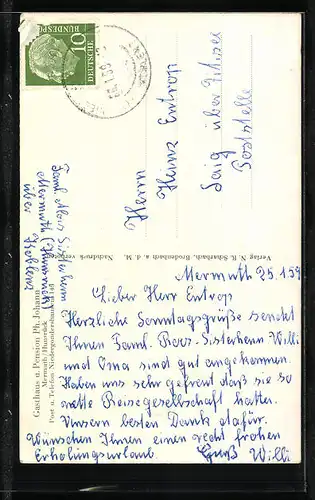 DEUTSCHE
BUNDESPOST
10
Herrn
Heinz Entrop
Saig über Titisee
Poststelle
Faml. Alois Sisterhenn
Mermuth (Hunsrück)
über Koblenz
Gasthaus u. Pension Ph. Johann
Mermuth/Hunsrück
Post u. Telefon Niedergondershausen 143
Verlag N. R. Schaabach, Brodenbach a. d. M.
Nachdruck
Mermuth 25.1.59
Lieber Herr Entrop
Herzliche Sonntagsgrüße sendet
Ihnen Faml. Roos-Sisterhenn Willi
und Oma sind gut angekommen.
Haben uns sehr gefreut daß sie so
nette Reisegesellschaft hatten.
Unsern besten Dank dafür.
Wünschen Ihnen einen recht frohen
Erholungsurlaub.
Gruß Willi